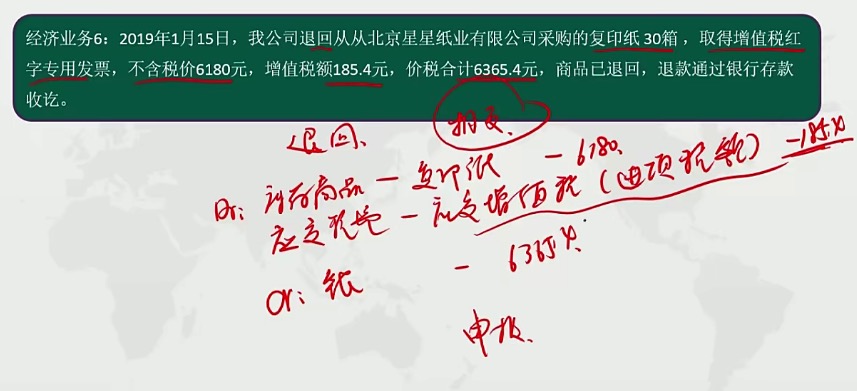 经济业务6：2019年1月15日，我公司退回从从北京星星纸业有限公司采购的复印纸 30箱 ，取得增值税红
字专用发票，不含税价6180元，增值税额185.4元，价税合计6365.4元，商品已退回，退款通过银行存款
收讫。
退回、
Dr: 库存商品 — 复印纸 -6180
应交税费 — 应交增值税 (进项税额) -185.4
Cr: 银 - 6365.4
申报、